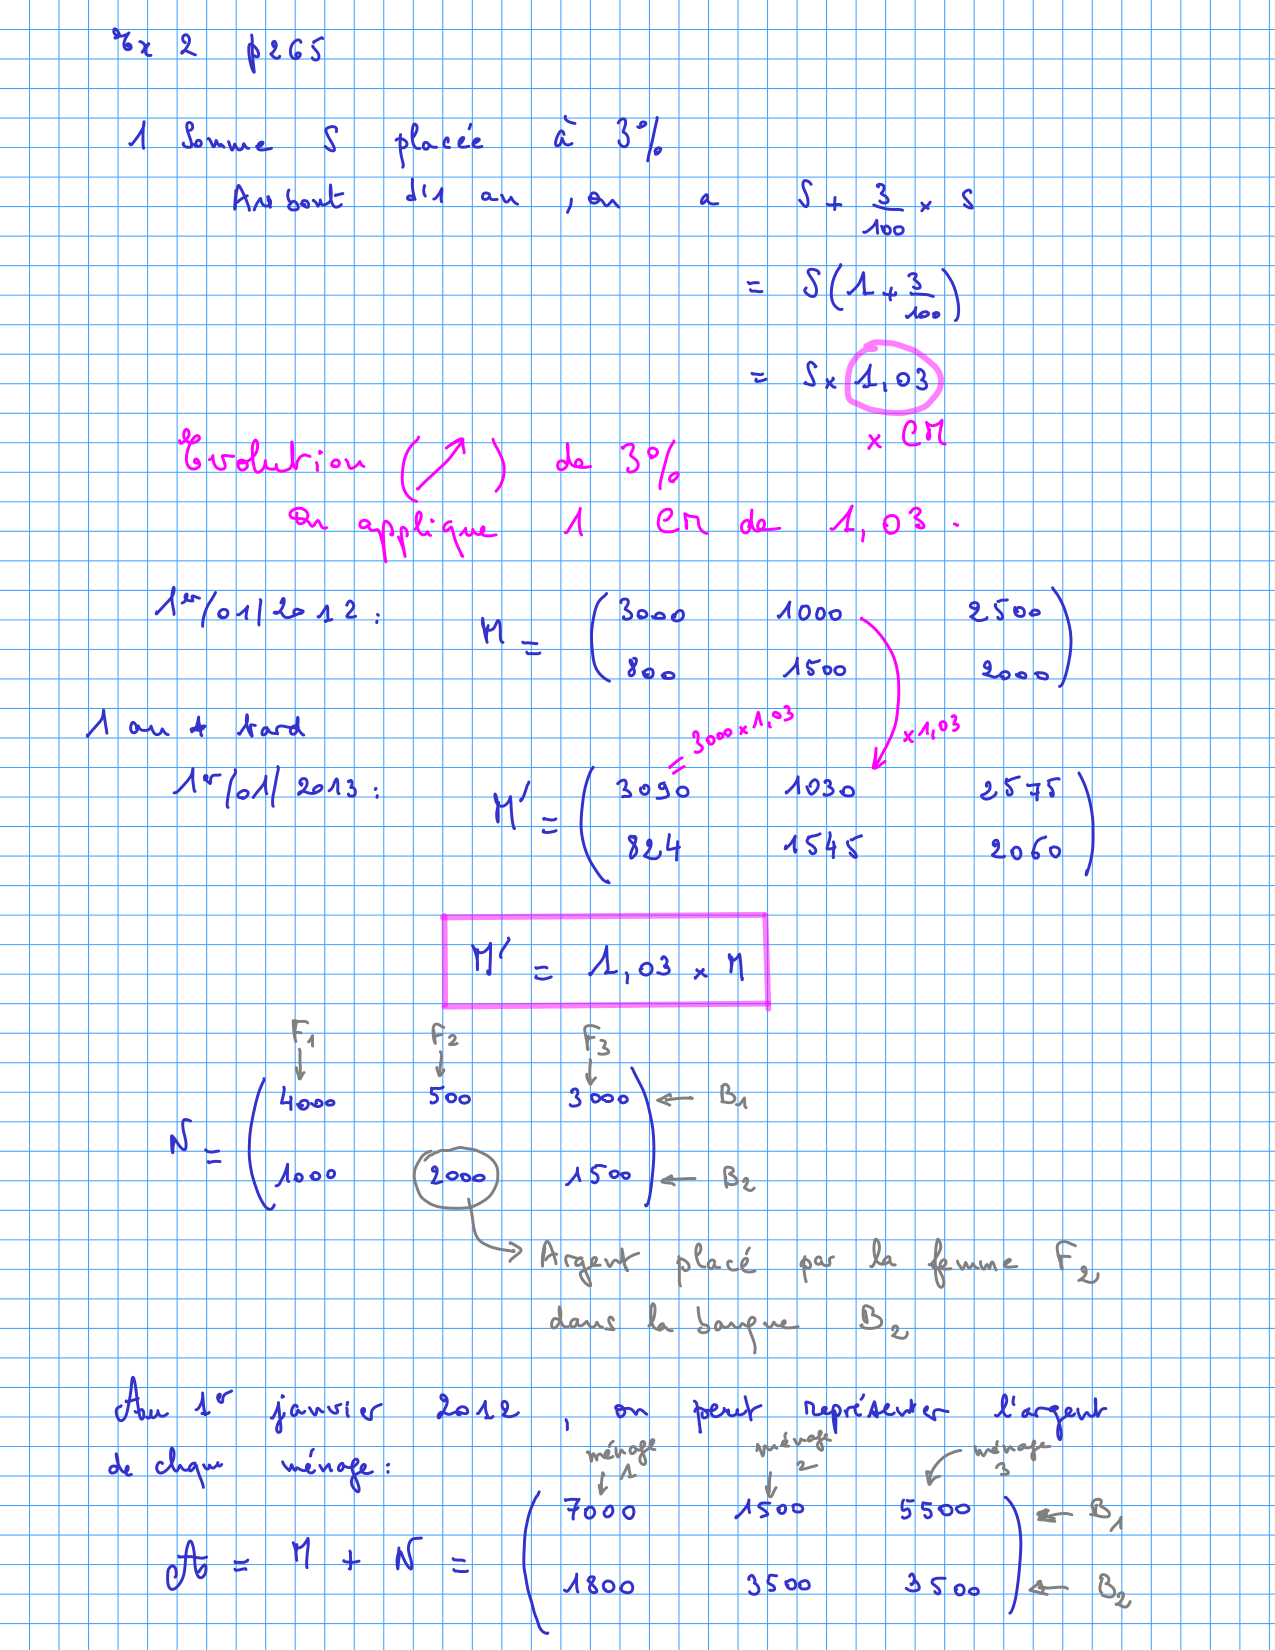 Ex 2 p265
1 Somme S placée à 3%
Au bout d'1 an, on a S + 3/100 × S
= S(1 + 3/100)
= S × 1,03
× CM
Evolution (↗) de 3%
On applique 1 CM de 1,03.
1er/01/2012 : M = (3000 1000 2500
800 1500 2000)
1 an + tard
= 3000 × 1,03
× 1,03
1er/01/2013 : M' = (3090 1030 2575
824 1545 2060)
M' = 1,03 × M
F1 F2 F3
N = (4000 500 3000 ← B1
1000 2000 1500) ← B2
→ Argent placé par la femme F2
dans la banque B2
Au 1er janvier 2012, on peut représenter l'argent
de chque ménage :
ménage 1 ménage 2 ménage 3
A = M + N = (7000 1500 5500 ← B1
1800 3500 3500) ← B2